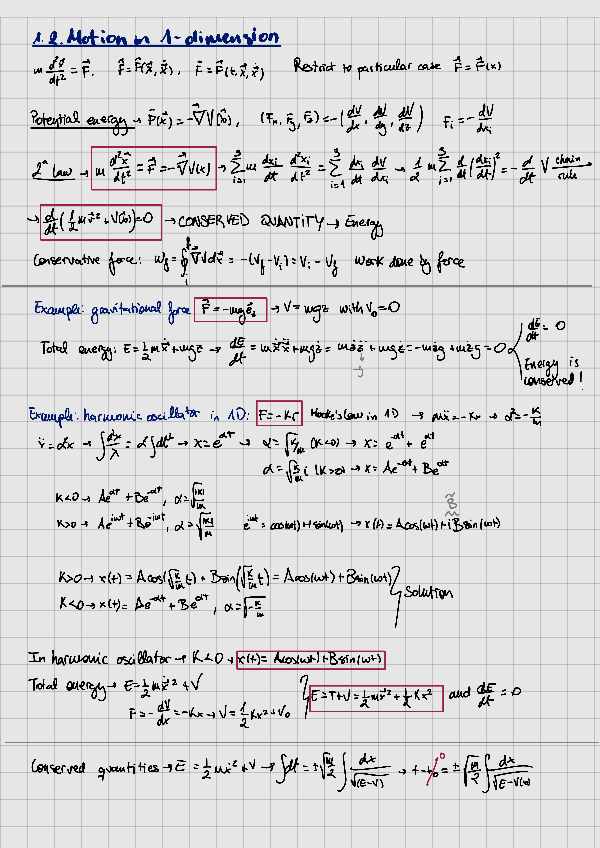 1.2. Motion in 1-dimension
m d²x⃗/dt² = F⃗. F⃗ = F⃗(x⃗, ẋ⃗), F⃗ = F⃗(t, x⃗, ẋ⃗) Restrict to particular case F⃗ = F⃗(x)
Potential energy → F⃗(x⃗) = -∇⃗V(x⃗), (Fx, Fy, Fz) = -(dV/dx, dV/dy, dV/dz) Fi = -dV/dxi
2ⁿ law → m d²x⃗/dt² = F⃗ = -∇⃗V(x) → Σ³ᵢ₌₁ m dxi/dt d²xi/dt² = Σ³ᵢ₌₁ dxi/dt dV/dxi → 1/2 m Σ³ᵢ₌₁ d/dt (dxi/dt)² = -d/dt V chain rule
→ d/dt (1/2 mẋ² + V(x)) = 0 → CONSERVED QUANTITY → Energy
Conservative force: = -(Vf - Vi) = Vi - Vf Work done by force
Example: gravitational force F⃗ = -mg e⃗z → V = mgz with V₀ = 0
Total energy: E = 1/2 mẋ² + mgz → dE/dt = mẋẍ + mgż = mżz̈ + mgż = -mżg + mżg = 0
-g
dE/dt = 0
Energy is conserved!
Example: harmonic oscillator in 1D: F = -Kr Hooke's law in 1D → mẍ = -Kx → α² = -K/m
→ x = e^αt → α = √K/m (K<0) → x = e^αt + e^-αt
α = √K/m i (K>0) → x = Ae^αt + Be^-αt
K<0 → Ae^αt + Be^-αt, α = √|K|/m
K>0 → Ae^iωt + Be^-iωt, α = √|K|/m e^iωt = cos(ωt) + isin(ωt) → x(t) = Acos(ωt) + iBsin(ωt)
K>0 → x(t) = Acos(√K/m t) + Bsin(√K/m t) = Acos(ωt) + Bsin(ωt)
K<0 → x(t) = Ae^αt + Be^-αt, α = √-K/m
Solution
In harmonic oscillator → K<0 → x(t) = Acos(ωt) + Bsin(ωt)
Total energy → E = 1/2 mẋ² + V
E = T + V = 1/2 mẋ² + 1/2 Kx² and dE/dt = 0
F = -dV/dx = -Kx → V = 1/2 Kx² + V₀
Conserved quantities → E = 1/2 mẋ² + V → ∫dt = ±√m/2 ∫ dx/√(E-V) → t - t₀ = ±√m/2 ∫ dx/√E-V(x)